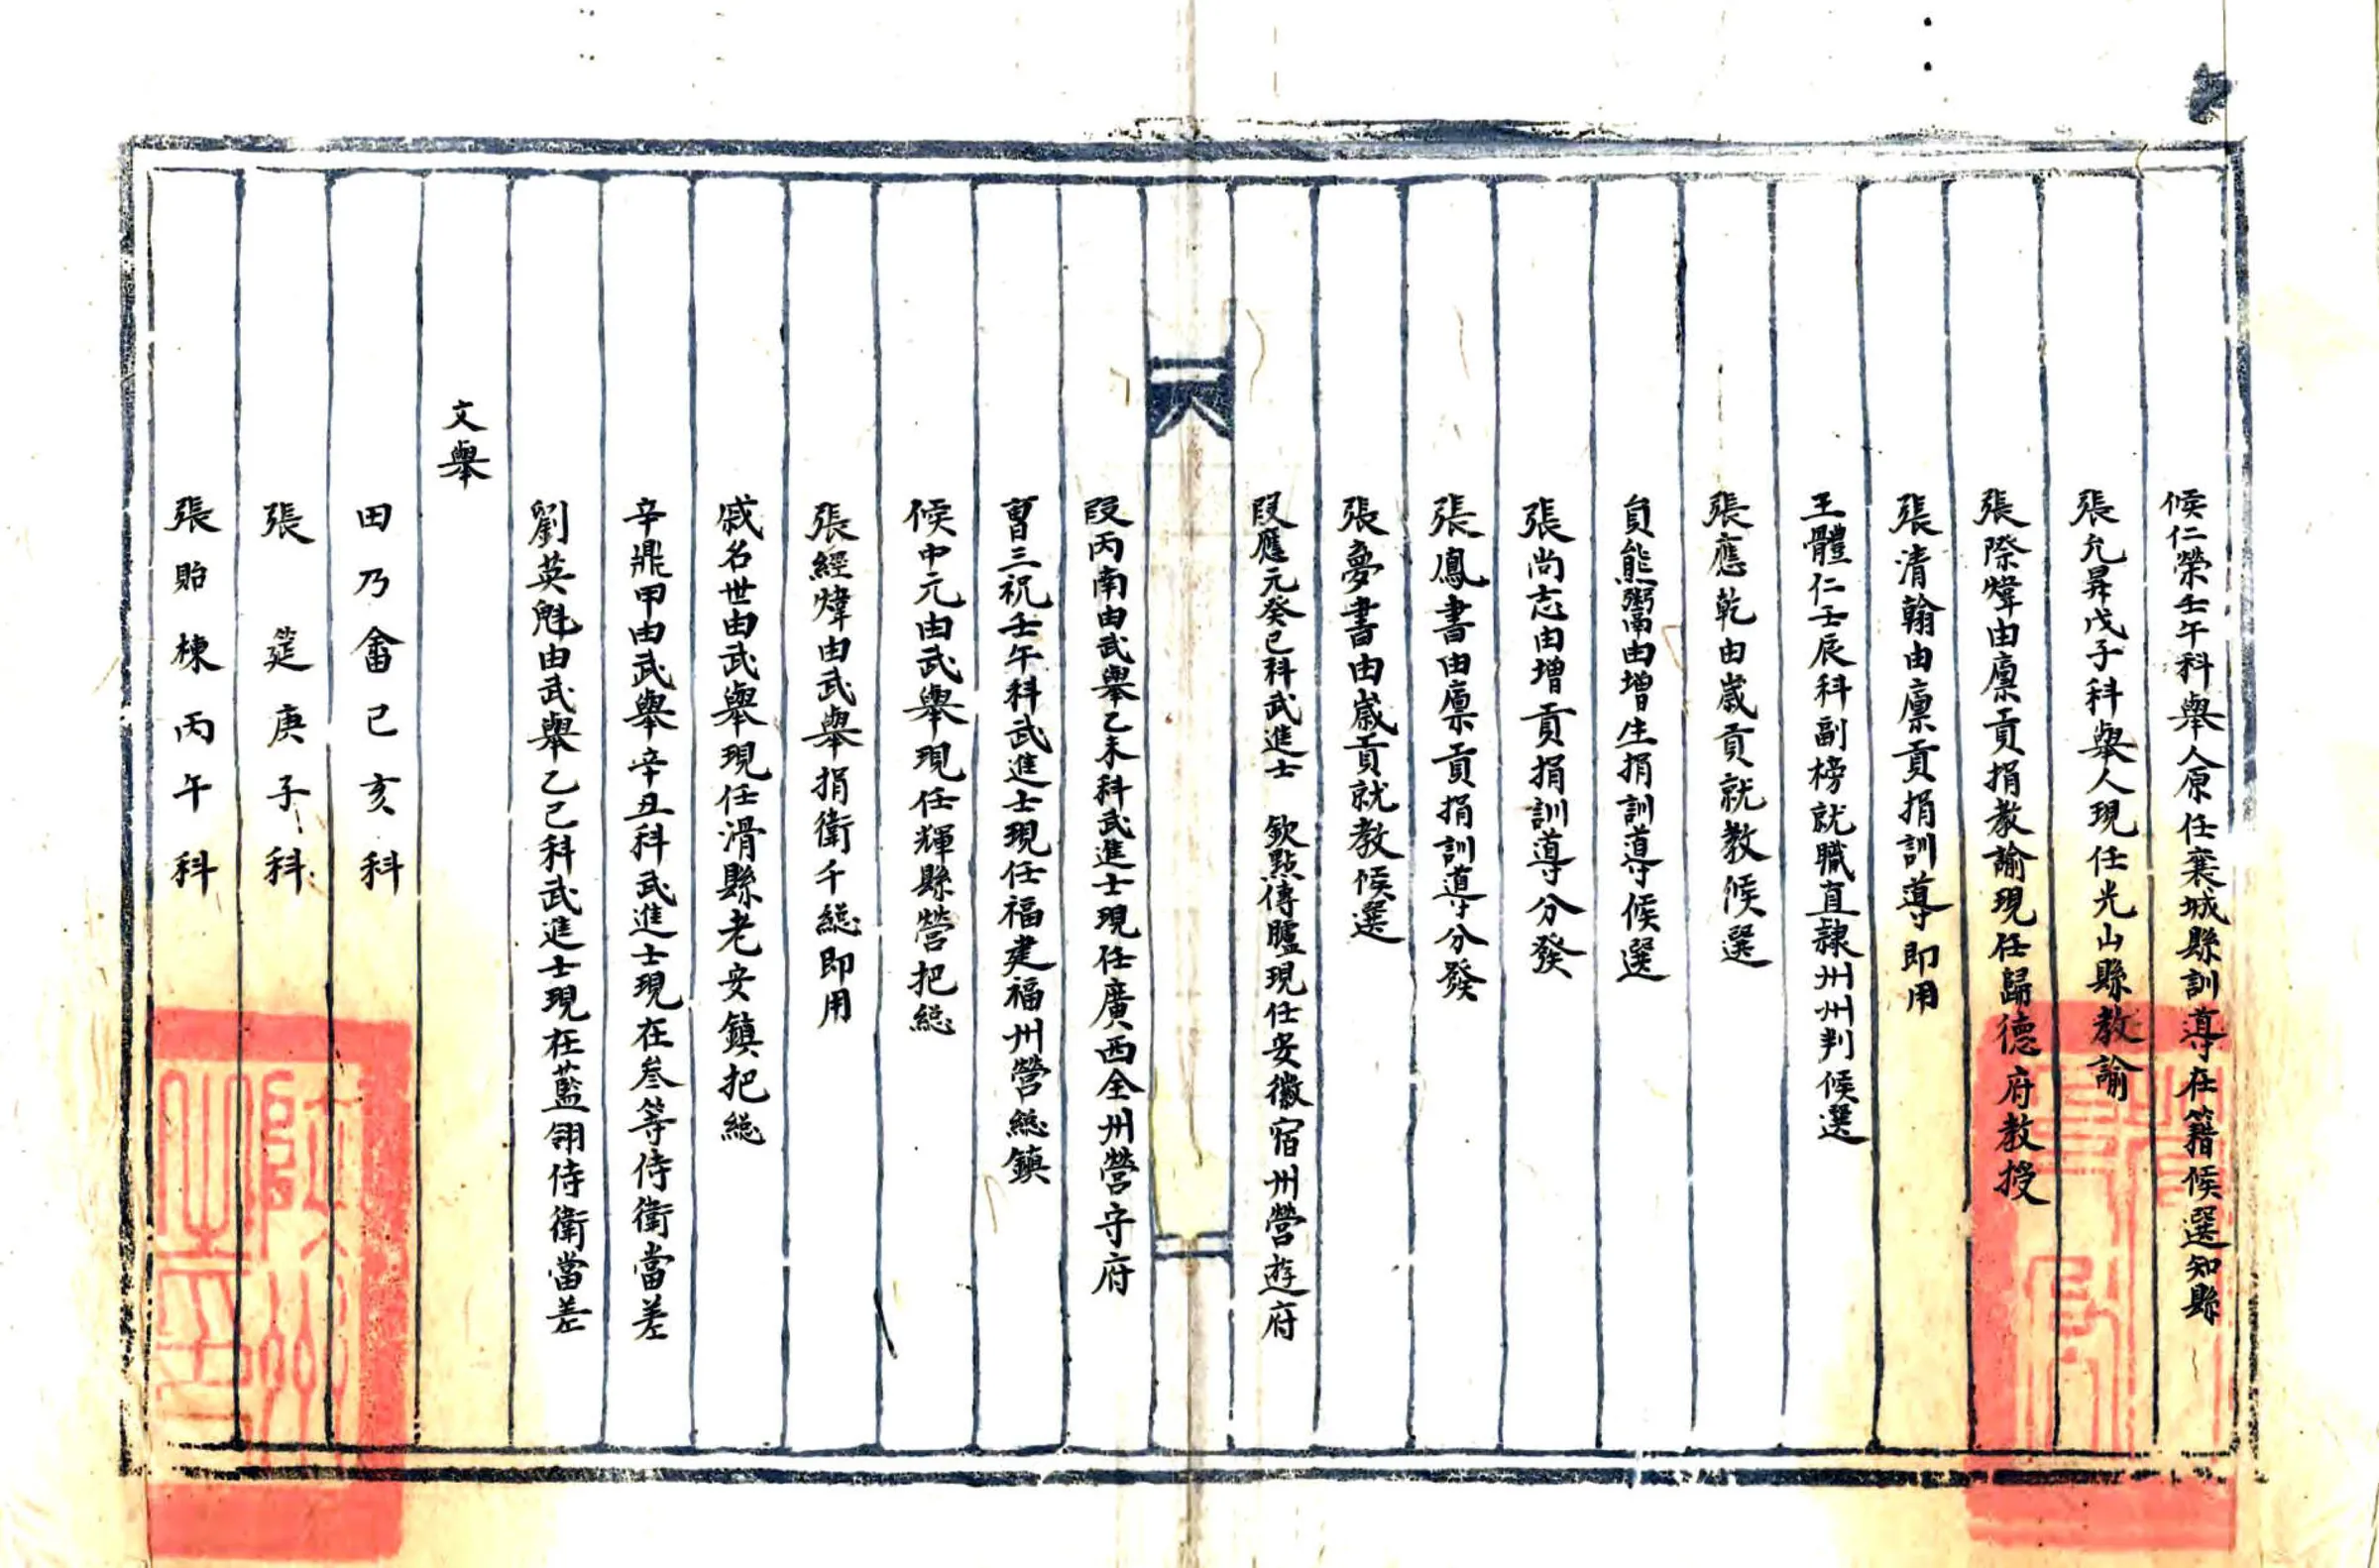 候仁榮壬午科舉人原任襄城縣訓導在籍候選知縣
張允昇戊子科舉人現任光山縣教諭
張際煒由廩貢捐教諭現任歸德府教授
張清翰由廩貢捐訓導即用
王體仁壬辰科副榜就職直隸州州判候選
張應乾由歲貢就教候選
員熊鬻由增生捐訓導候選
張尚志由增貢捐訓導分發
張鳳書由廩貢捐訓導分發
張夢書由歲貢就教候選
段應元癸巳科武進士 欽點傳臚現任安徽宿州營遊府
段丙南由武舉乙未科武進士現任廣西全州營守府
曹三祝壬午科武進士現任福建福州營總鎮
候中元由武舉現任輝縣營把總
張經煒由武舉捐衛千總即用
戚名世由武舉現任滑縣老安鎮把總
辛鼎甲由武舉辛丑科武進士現在叁等侍衛當差
劉英魁由武舉乙巳科武進士現在藍翎侍衛當差
文舉
田乃畬己亥科
張 筵庚子科
張貽棟丙午科
陝州之印